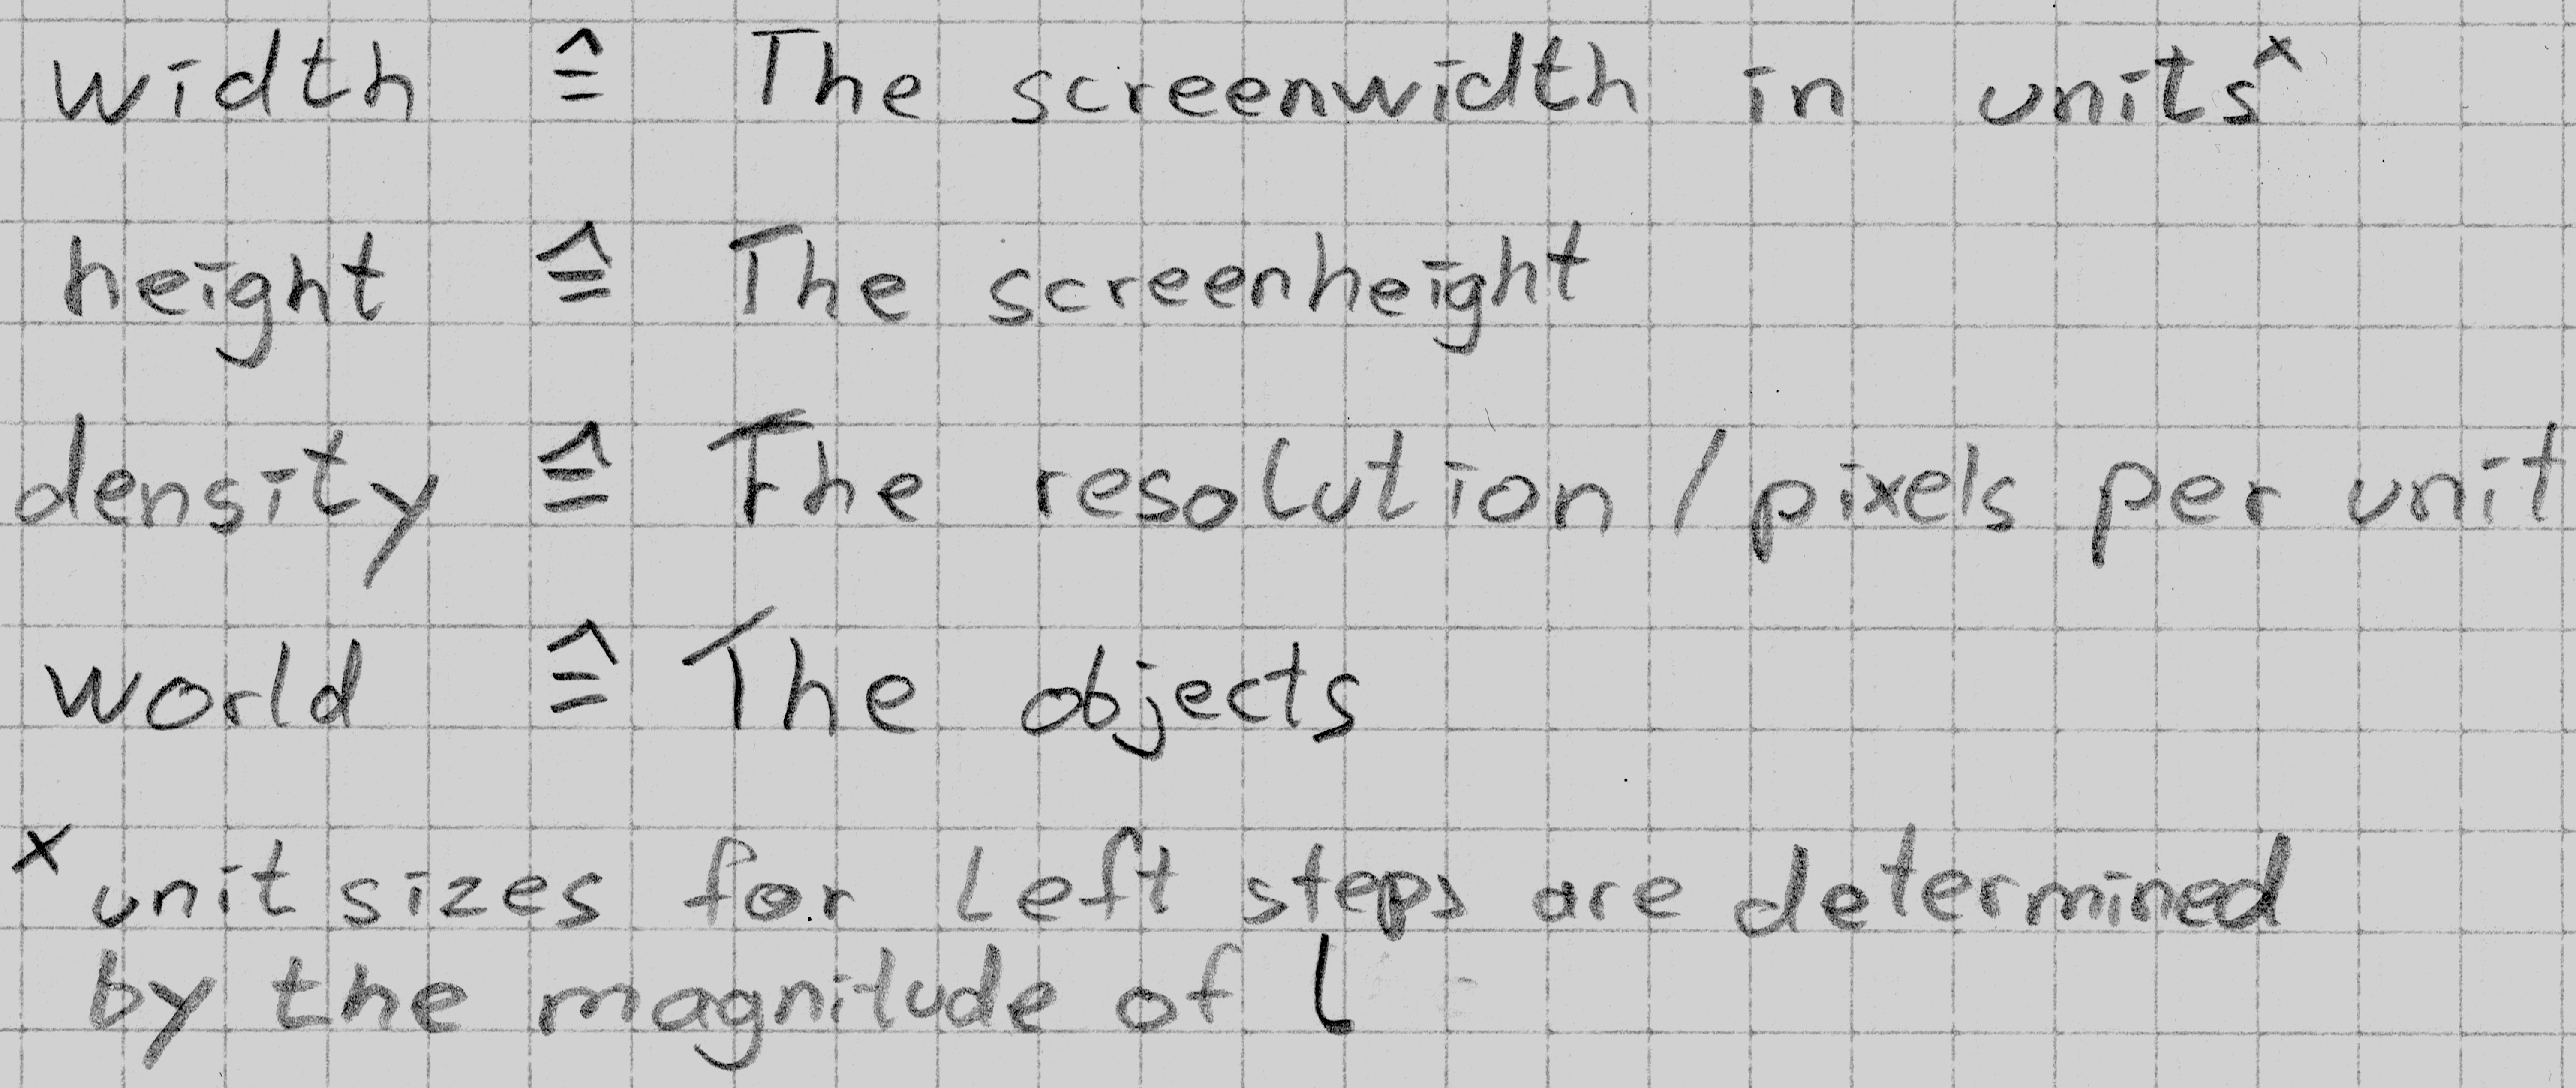 width ≙ The screenwidth in units ˣ
height ≙ The screenheight
density ≙ The resolution / pixels per unit
world ≙ The objects
ˣ unit sizes for left steps are determined
by the magnitude of l